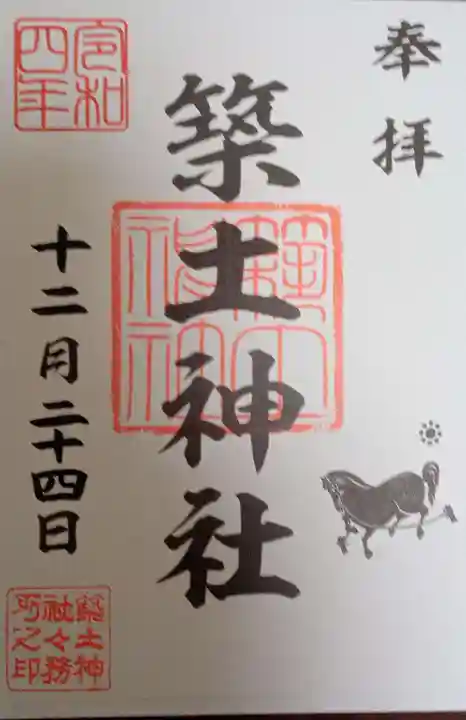 奉拝
築土神社
築土神社
令和四年
十二月二十四日
築土神社々務所之印